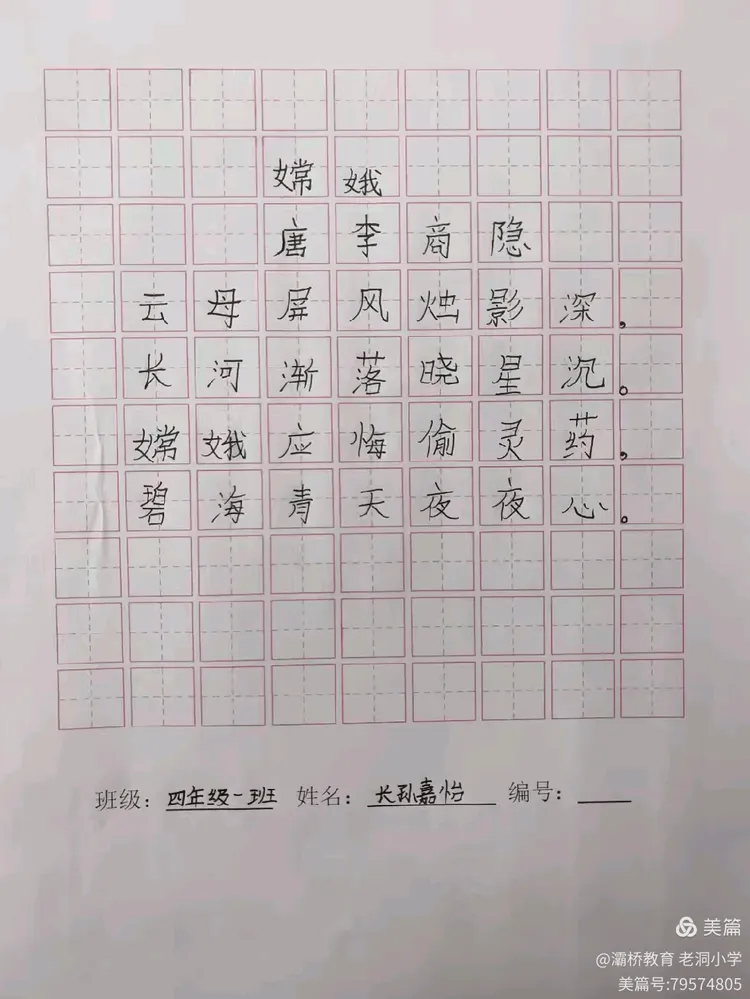 嫦娥
唐李商隐
云母屏风烛影深，
长河渐落晓星沉。
嫦娥应悔偷灵药，
碧海青天夜夜心。
班级：四年级一班 姓名：长孙嘉怡 编号：
美篇
@灞桥教育 老洞小学
美篇号:79574805